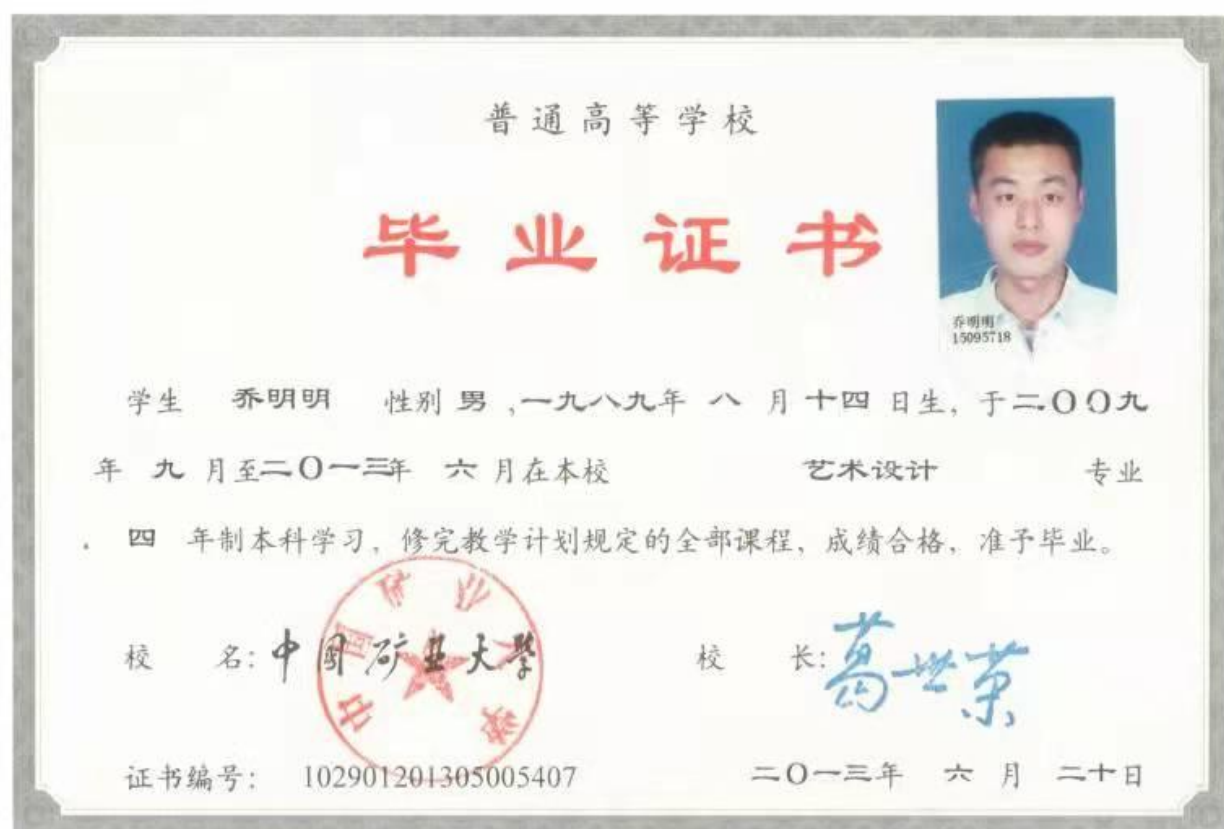 普通高等学校
毕业证书
乔明明
15095718
学生 乔明明 性别 男 ,一九八九年 八 月 十四 日生, 于二〇〇九
年 九 月至二〇一三年 六 月在本校 艺术设计 专业
. 四 年制本科学习, 修完教学计划规定的全部课程, 成绩合格, 准予毕业。
校 名: 中国矿业大學 校 长: 葛世荣
中国矿业大学
证书编号: 102901201305005407 二〇一三年 六 月 二十日